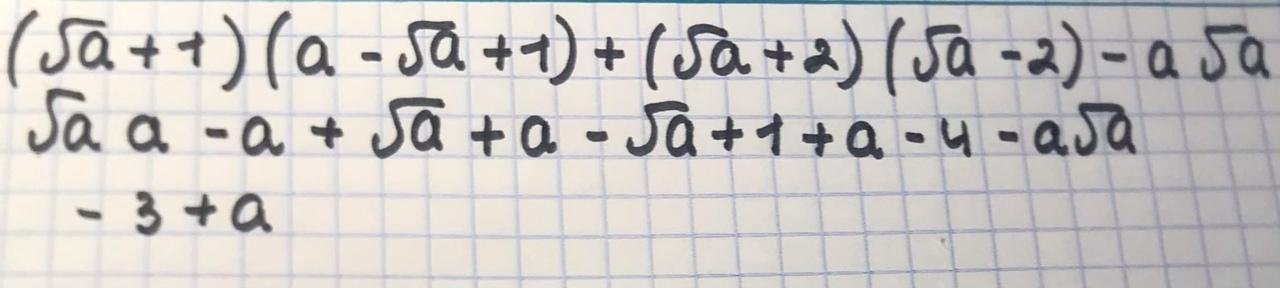 (√a + 1)(a - √a + 1) + (√a + 2)(√a - 2) - a √a
√a a - a + √a + a - √a + 1 + a - 4 - a√a
- 3 + a